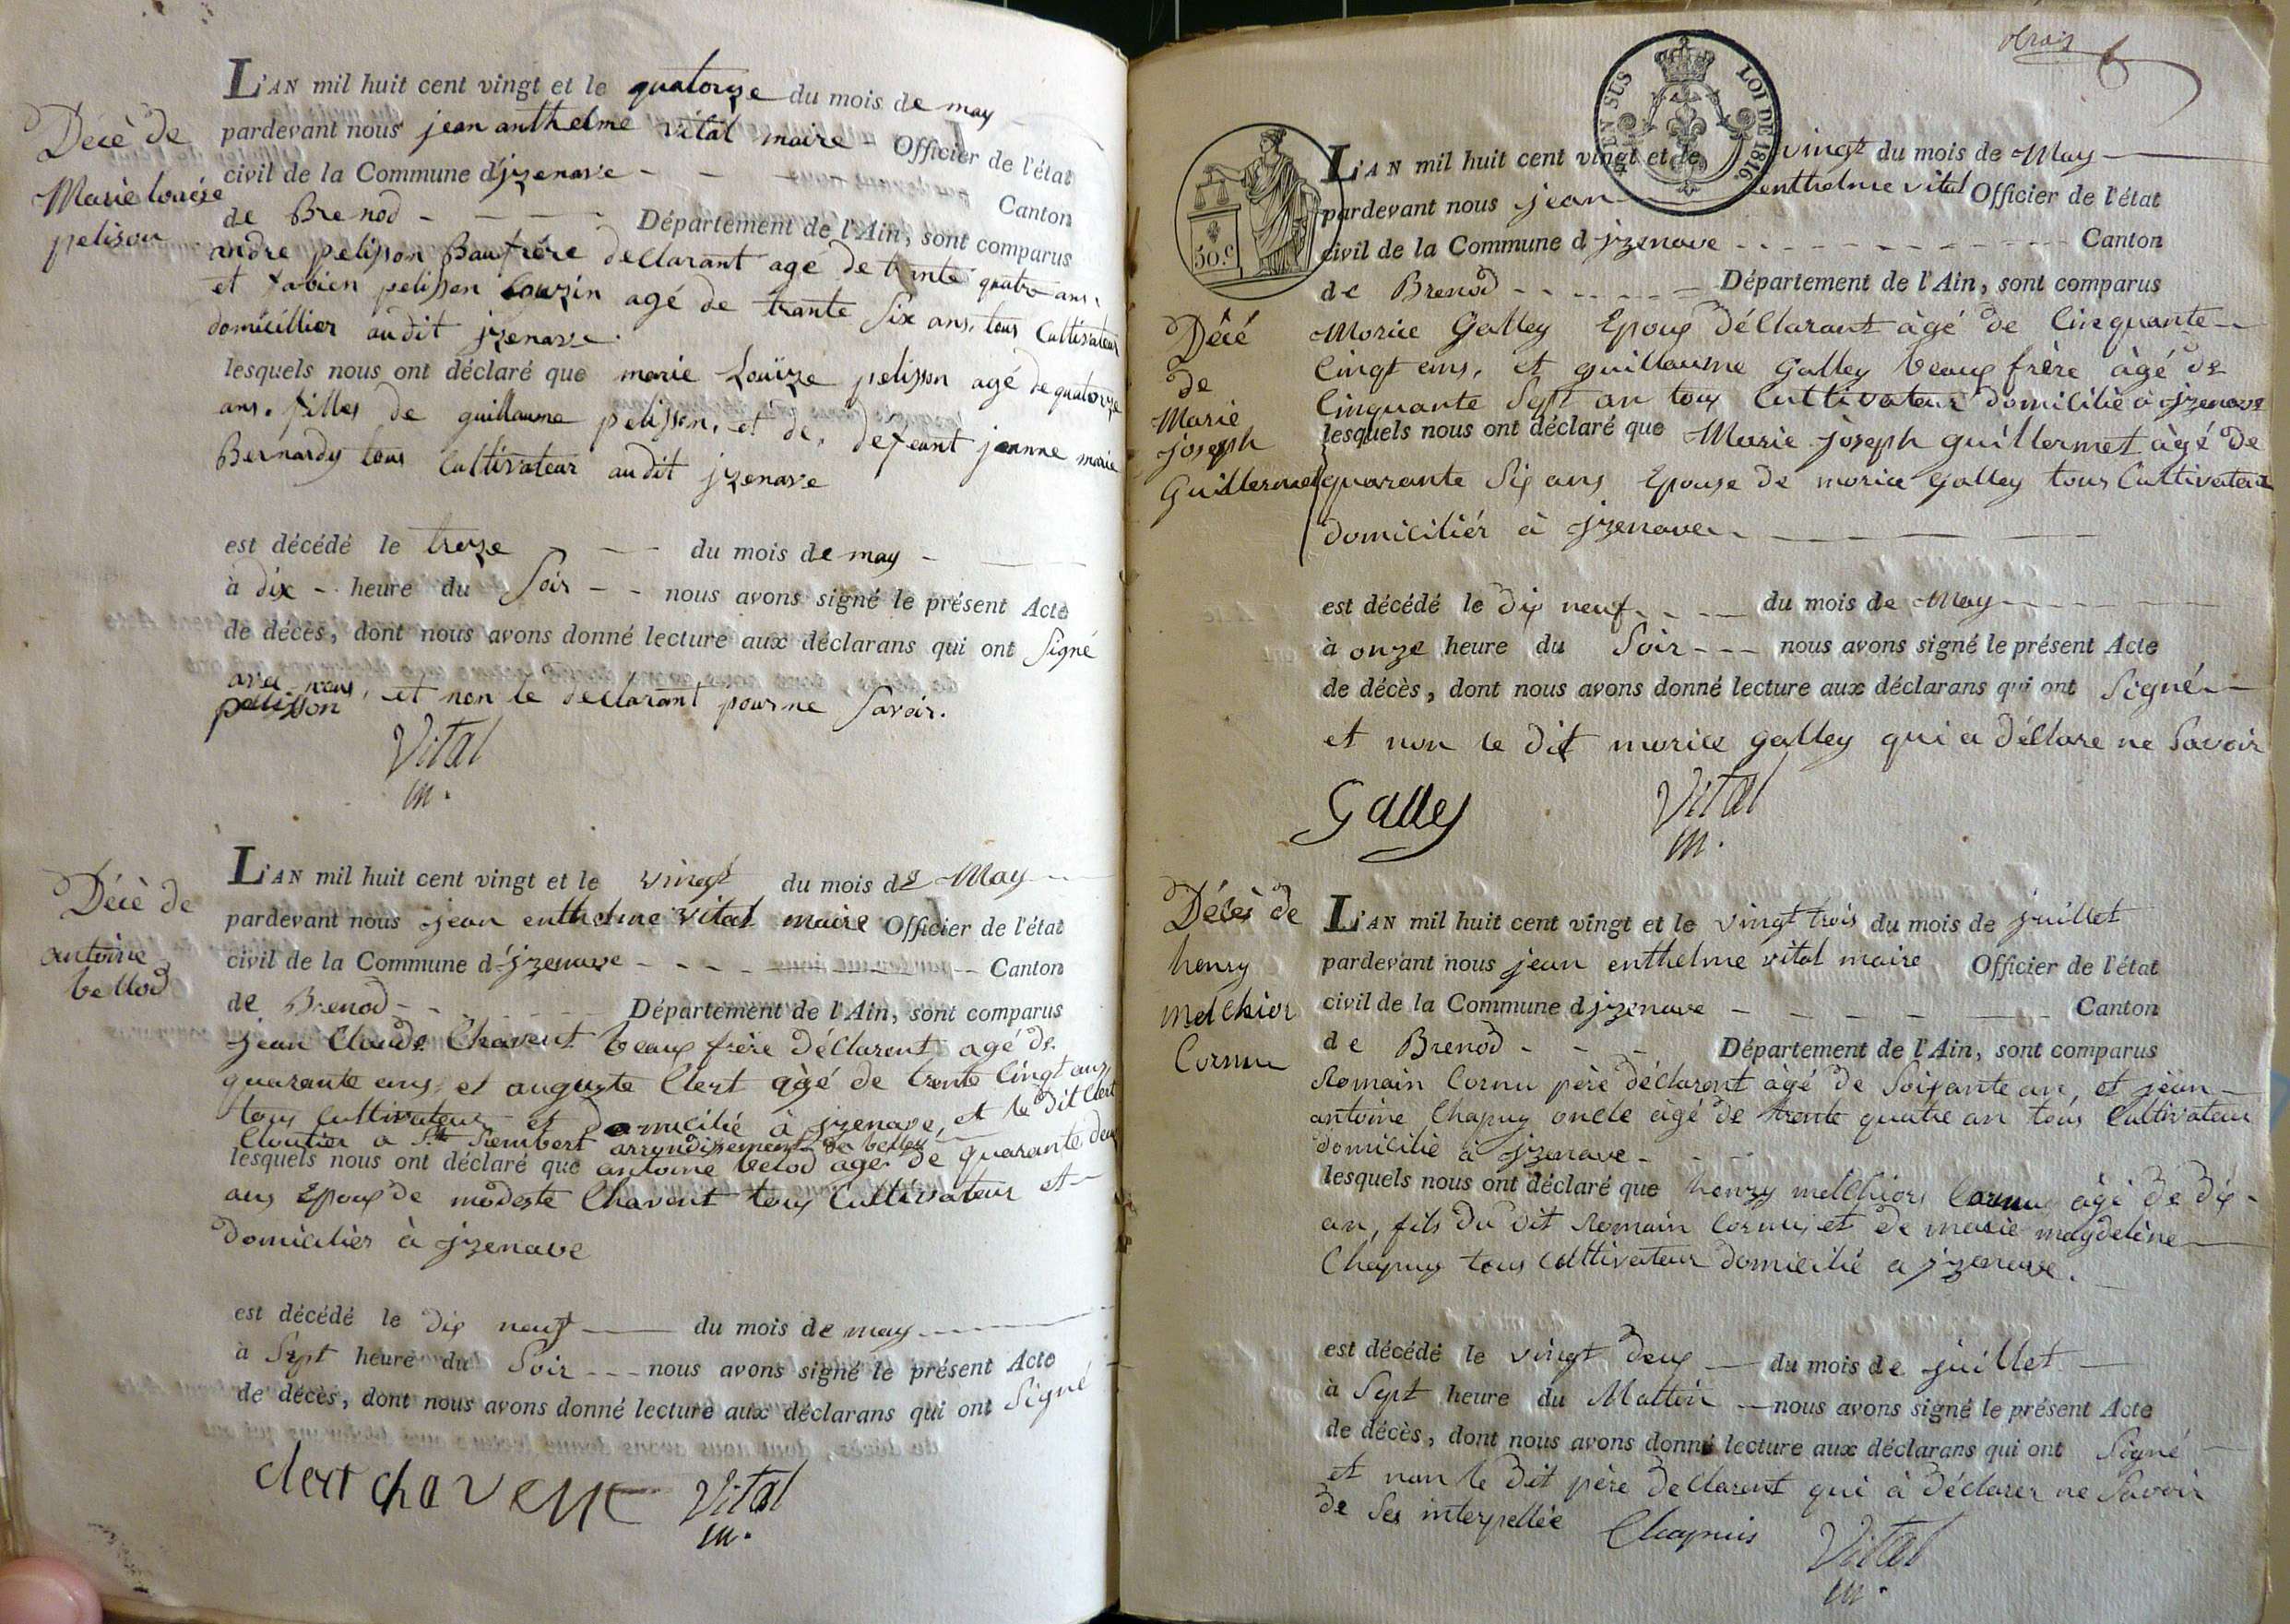 L'AN mil huit cent vingt et le quatorze du mois de may
pardevant nous jean anthelme vital maire Officier de l'état
civil de la Commune d'jzenave Canton
de Brenod Département de l'Ain, sont comparus
andre pelisson Baufrére declarant agé de trante quatre ans,
et fabien pelisson Couzin agé de trante Six ans, tous Cultivateur
domicillier audit jzenave.
lesquels nous ont déclaré que marie Louïze pelisson agé de quatorze
ans. filles de guillaume pelisson, et de, defeant jeanne marie
Bernardy tous Cultivateur audit jzenave
est décédé le treze du mois de may
à dix heure du Soir nous avons signé le présent Acte
de décès, dont nous avons donné lecture aux déclarans qui ont Signé
avec nous, et non le declarant pour ne Savoir.
pelisson
Vital
m.
Décè de
Marie louise
pelison
L'AN mil huit cent vingt et le vingt du mois de May
pardevant nous jean enthelme vital maire Officier de l'état
civil de la Commune d'jzenave Canton
de Brenod Département de l'Ain, sont comparus
jean Claude Chavent beaux frère déclarent agé de
quarante ans, et auguste Clert àgé de trente Cingt ans,
tous Cultivateur et domicilié à jzenave, et le dit Clert
Cloutier a St Rembert arrondissement de belley
lesquels nous ont déclaré que antoine belod age de quarante deux
ans Epoux de modeste Chavent tous Cultivateur et
domicilier à jzenave
est décédé le dix neuf du mois de may
à Sept heure du Soir nous avons signé le présent Acte
de décès, dont nous avons donné lecture aux déclarans qui ont Signé
clert chavent Vital
m.
Décè de
antoine
bellod
LOI DE 1816
50.c
L'AN mil huit cent vingt et le vingt du mois de May
pardevant nous jean enthelme vital Officier de l'état
civil de la Commune d jzenave Canton
de Brenod Département de l'Ain, sont comparus
Morice Galley Epoux déclarant àgé de Cinquante
Cingt ans, et guillaume Galley beaux frère àgé de
Cinquante Sept an tous Cultivateur domicilié à jzenave
lesquels nous ont déclaré que Marie joseph guillermet àgé de
quarante Six ans Epouse de morice Galley tous Cultivateur
domiciliér à jzenave
est décédé le dix neuf du mois de May
à onze heure du Soir nous avons signé le présent Acte
de décès, dont nous avons donné lecture aux déclarans qui ont Signé
et non le dit morice galley qui a déclare ne Savoir
Galley Vital
m.
Décé
de
Marie
joseph
Guillermet
L'AN mil huit cent vingt et le vingt trois du mois de juillet
pardevant nous jean enthelme vital maire Officier de l'état
civil de la Commune d jzenave Canton
de Brenod Département de l'Ain, sont comparus
Romain Cornu père déclarent àgé de Soixante an, et jean
antoine Chapuy oncle àgé de trente quatre an tous Cultivateur
domicilié à jzenave
lesquels nous ont déclaré que henry melchior Cornu àgé de dix
an, fils du dit Romain Cornu, et de marie magdelène
Chapuy tous cultivateur domicilié a jzenave.
est décédé le vingt deux du mois de juillet
à Sept heure du Mattin nous avons signé le présent Acte
de décès, dont nous avons donné lecture aux déclarans qui ont Signé
et non le dit père declarent qui à déclarer ne Savoir
de Ses interpellée Chapuis Vital
m.
Décès de
henry
melchior
Cornu